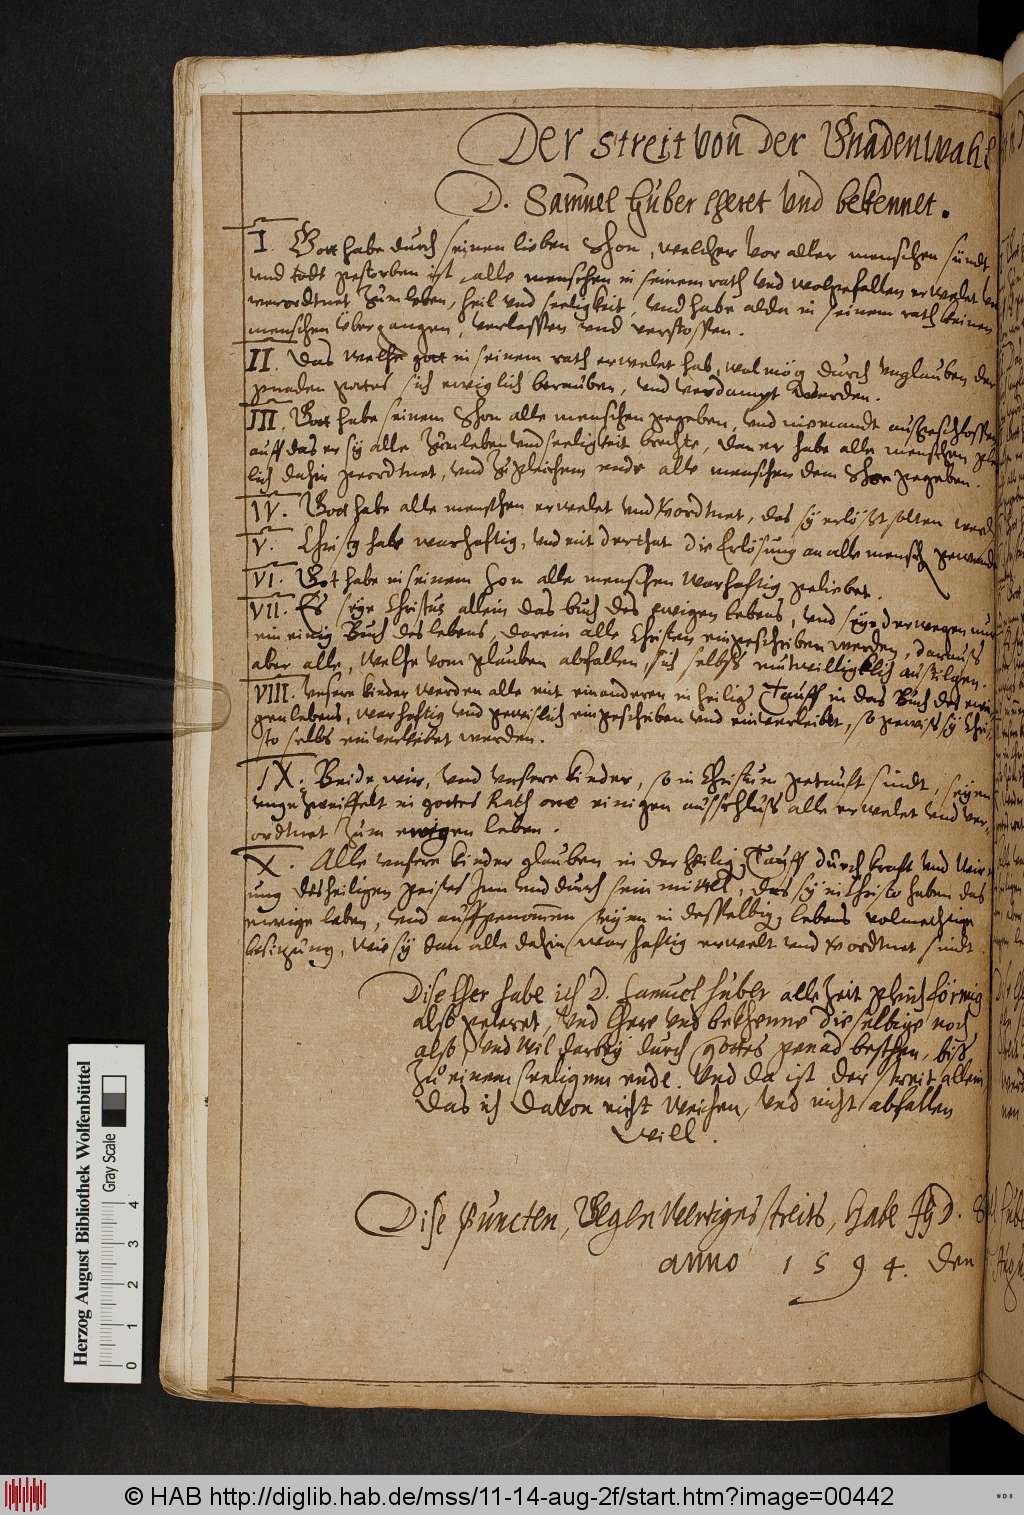 Der streit von der Gnadenwahl
D. Samuel Huber lheret und bekennet.
I. Gott habe durch seinen lieben Shon, welcher vor aller menschen sündt
und todt gestorben ist, alle menschen in seinem rath und wolgefallen erwelet
verordtnet zum leben, heil und seeligkeit, und habe alda in seinem rath keinen
menschen übergangen, verlassen und verstossen.
II. Das welche gott in seinem rath erwelet hab, wol mög durch unglauben der
gnaden gottes sich ewiglich berauben, und verdampt werden.
III. Gott habe seinem Shon alle menschen gegeben, und niemandt aussgeschlossen
auff das er sy alle zum leben und seeligkeit brechte, dan er habe alle menschen
lich dahin geordtnet, und zu gleichem ende alle menschen dem Shon gegeben.
IV. Gott habe alle menschen erwelet und verordtnet, das sy erlösst solten
V. Christus habe warhaftig, und mit der that die Erlösung an alle mensch gewendt
VI. Gott habe in seinem Son alle menschen warhaftig geliebet.
VII. Es seye Christus allein das buch des ewigen lebens, und seye derwegen nur
ein einig Buch des lebens, darein alle Christen eingeschriben werden, darauss
aber alle, welche vom glauben abfallen, sich selbs mutwilligklich austilgen.
VIII. Unsere kinder werden alle mit einanderen in heilig Tauff in das Buch des ewi-
gen lebens, warhaftig und gewislich eingeschriben und einverleibet, so gewiss sy Chri-
sto selbs einverleibet werden.
IX. Beide wir, und unsere kinder, so in Christum getauft sindt, seyen
ungezweiffelt in gottes Rath one einigen ausschluss alle erwelet und ver-
ordtnet zum ewigen leben.
X. Alle unsere kinder glauben in der heilig Tauff durch kraft und wir-
ung des heiligen geistes Inn und durch sein mittel, das sy in Christo haben das
ewige leben, und auffgenommen seyen in desselbig lebens volmechtige
besizung, wie sy dan alle dahin warhaftig erwelt und verordtnet sindt.
Dise lher habe ich D. Samuel Huber alle Zeit gleichförmig
also geleret, Und lhere und bekhenne dieselbige noch
also, und wil darbey durch gottes genad besthen, biss
zu einem seeligenn ende. Und da ist der streit allein
das ich davon nicht weichen, und nicht abfallen
will.
Dise puncten, Gegenwertigens streits, habe
anno 1594. den
Herzog August Bibliothek Wolfenbüttel
Gray Scale
0 1 2 3 4
© HAB http://diglib.hab.de/mss/11-14-aug-2f/start.htm?image=00442